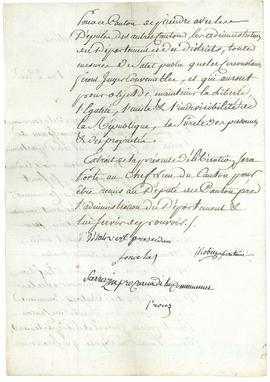 pour ce Canton se joindre avec les
Députés des autres Cantons les administrateurs
du Département et des districts, toute
mesure de salut public que les circonstances
feront juger Convenables et qui auront
pour objet de maintenir la liberté
l'Egalité, l'unité & l'indivisibilité de
la République, la sûreté des personnes
& des propriétés.
Extrait de la présente délibération sera
porté au Chef lieu du Canton pour
être remis au Député du Canton près
l'administration du Département &
lui servir de pouvoirs.
président
secrétaire
procureur de la Commune